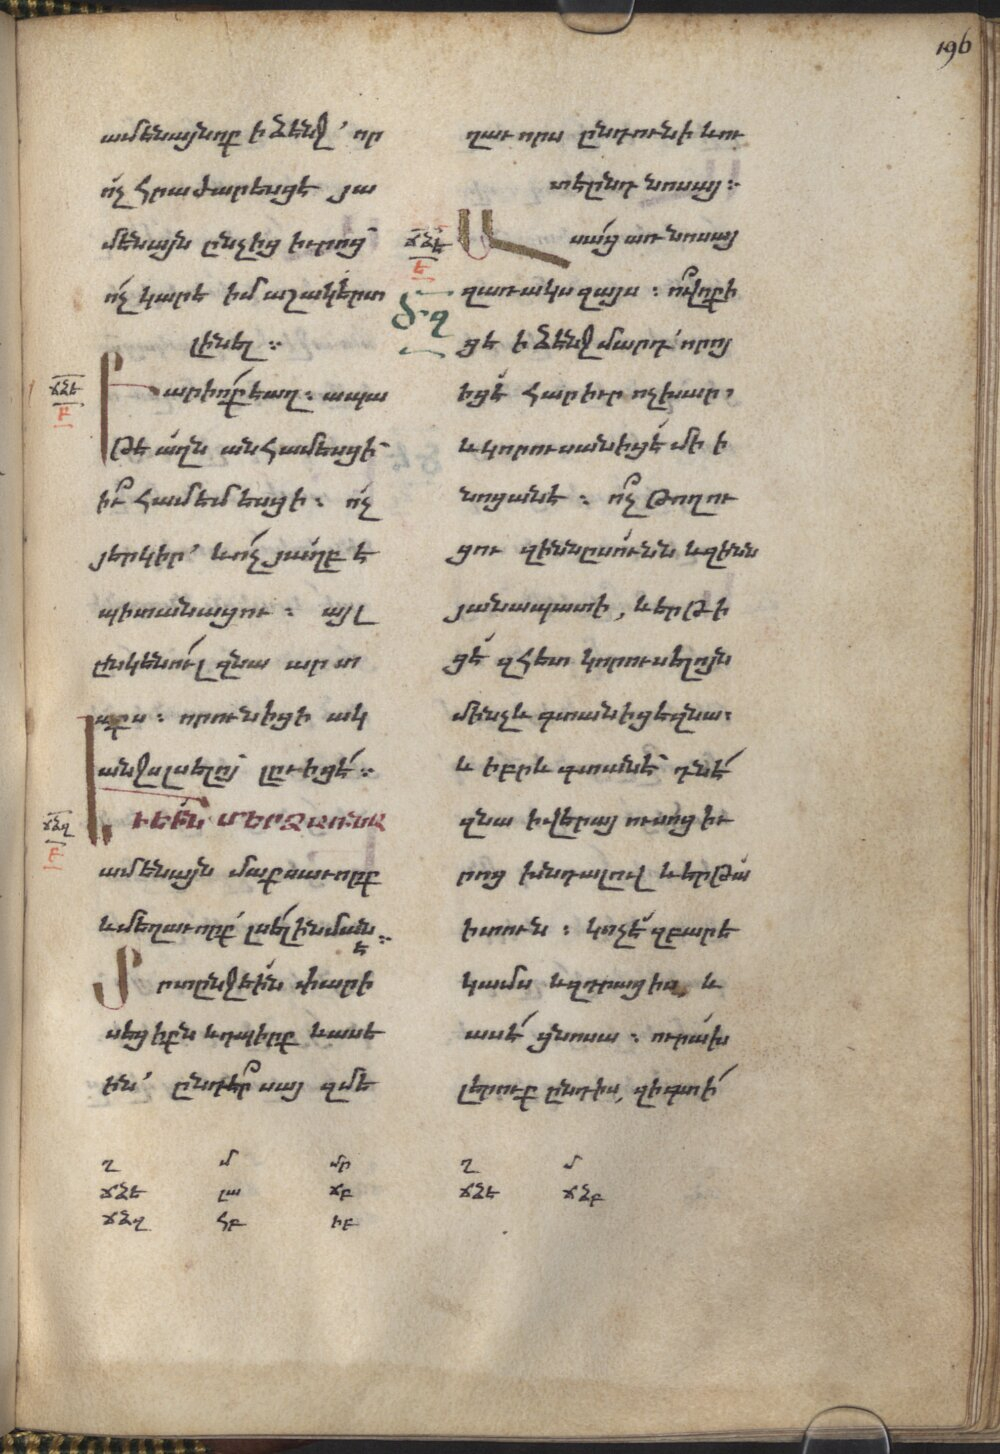 196
ամենայնոք ի ձէնջ՝ որ
ո՛չ հրաժարեսցէ յա
մենայն ընչից իւրոց՝
ո՛չ կարէ իմ աշակերտ
լինել ։
ճձե
բ
Բարիո՛ք է աղ ։ ապա
թէ ա՛ղն անհամեսցի՝
ի՞ւ համեմեսցի ։ ո՛չ
յերկիր՝ և ո՛չ յա՛ղբ է
պիտանացու ։ այլ
ընկենո՛ւլ զնա արտ
աքս ։ որ ունիցի ակ
անջս լսելոյ՝ լըւիցէ՛ ։
ճձզ
բ
ԵՒ ԷԻՆ ՄԵՐՁ ԱՌ ՆԱ
ամենայն մաքսաւորք
և մեղաւորք՝ լսե՛լ ինմանէ ։
Տրտընջէի՛ն փարի
սեցիքն և դպիրք և ասէ
ին՝ ընդէ՞ր սայ զմե
ղաւորս ընդունի և ու
տէ ընդ նոսայ ։
ճձէ
ե
Ասա՛ց առ նոսայ
զառակս զայս ։ ո՞վ ոք ի
ցէ ի ձէնջ մարդ՝ որոյ
իցէ՛ հարիւր ոչխար,
և կորուսանիցէ՛ մի ի
նոցանէ ։ ո՞չ թողու
ցու զիննըսո՛ւնն և զինն
յանապատի, և երթի
ցէ՛ զհետ կորուսելոյն
մինչև գտանիցէ զնա ։
և իբրև գտանէ՛ դնէ՛
զնա ի վերայ ուսոց իւ
րոց խնդալով և երթա՛
ի տուն ։ կոչէ՛ զբարե
կամս և զդրացիս, և
ասէ՛ ցնոսա ։ ուրա՛խ
լերուք ընդիս, զի գտի՛
ղ մ մր
ճձե լա ճբ
ճձզ հբ իբ
ղ մ
ճձէ ճձբ